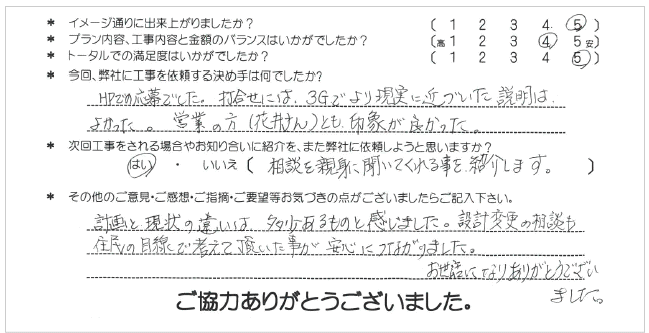 * イメージ通りに出来上がりましたか? ( 1 2 3 4 5 )
* プラン内容、工事内容と金額のバランスはいかがでしたか? (高 1 2 3 4 5 安)
* トータルでの満足度はいかがでしたか? ( 1 2 3 4 5 )
* 今回、弊社に工事を依頼する決め手は何でしたか?
HPでの応募でした。打合せには、3Gでより現実に近づいた説明は、
よかった。営業の方(花井さん)とも、印象が良かった。
* 次回工事をされる場合やお知り合いに紹介を、また弊社に依頼しようと思いますか?
はい ・ いいえ ( 相談を親身に聞いてくれる事を紹介します。 )
* その他のご意見・ご感想・ご指摘・ご要望等お気づきの点がございましたらご記入下さい。
計画と現状の違いは、多少あるものと感じました。設計変更の相談も
住民の目線で考えて頂いた事が安心につながりました。
お世話になりありがとうござい
ました。
ご協力ありがとうございました。